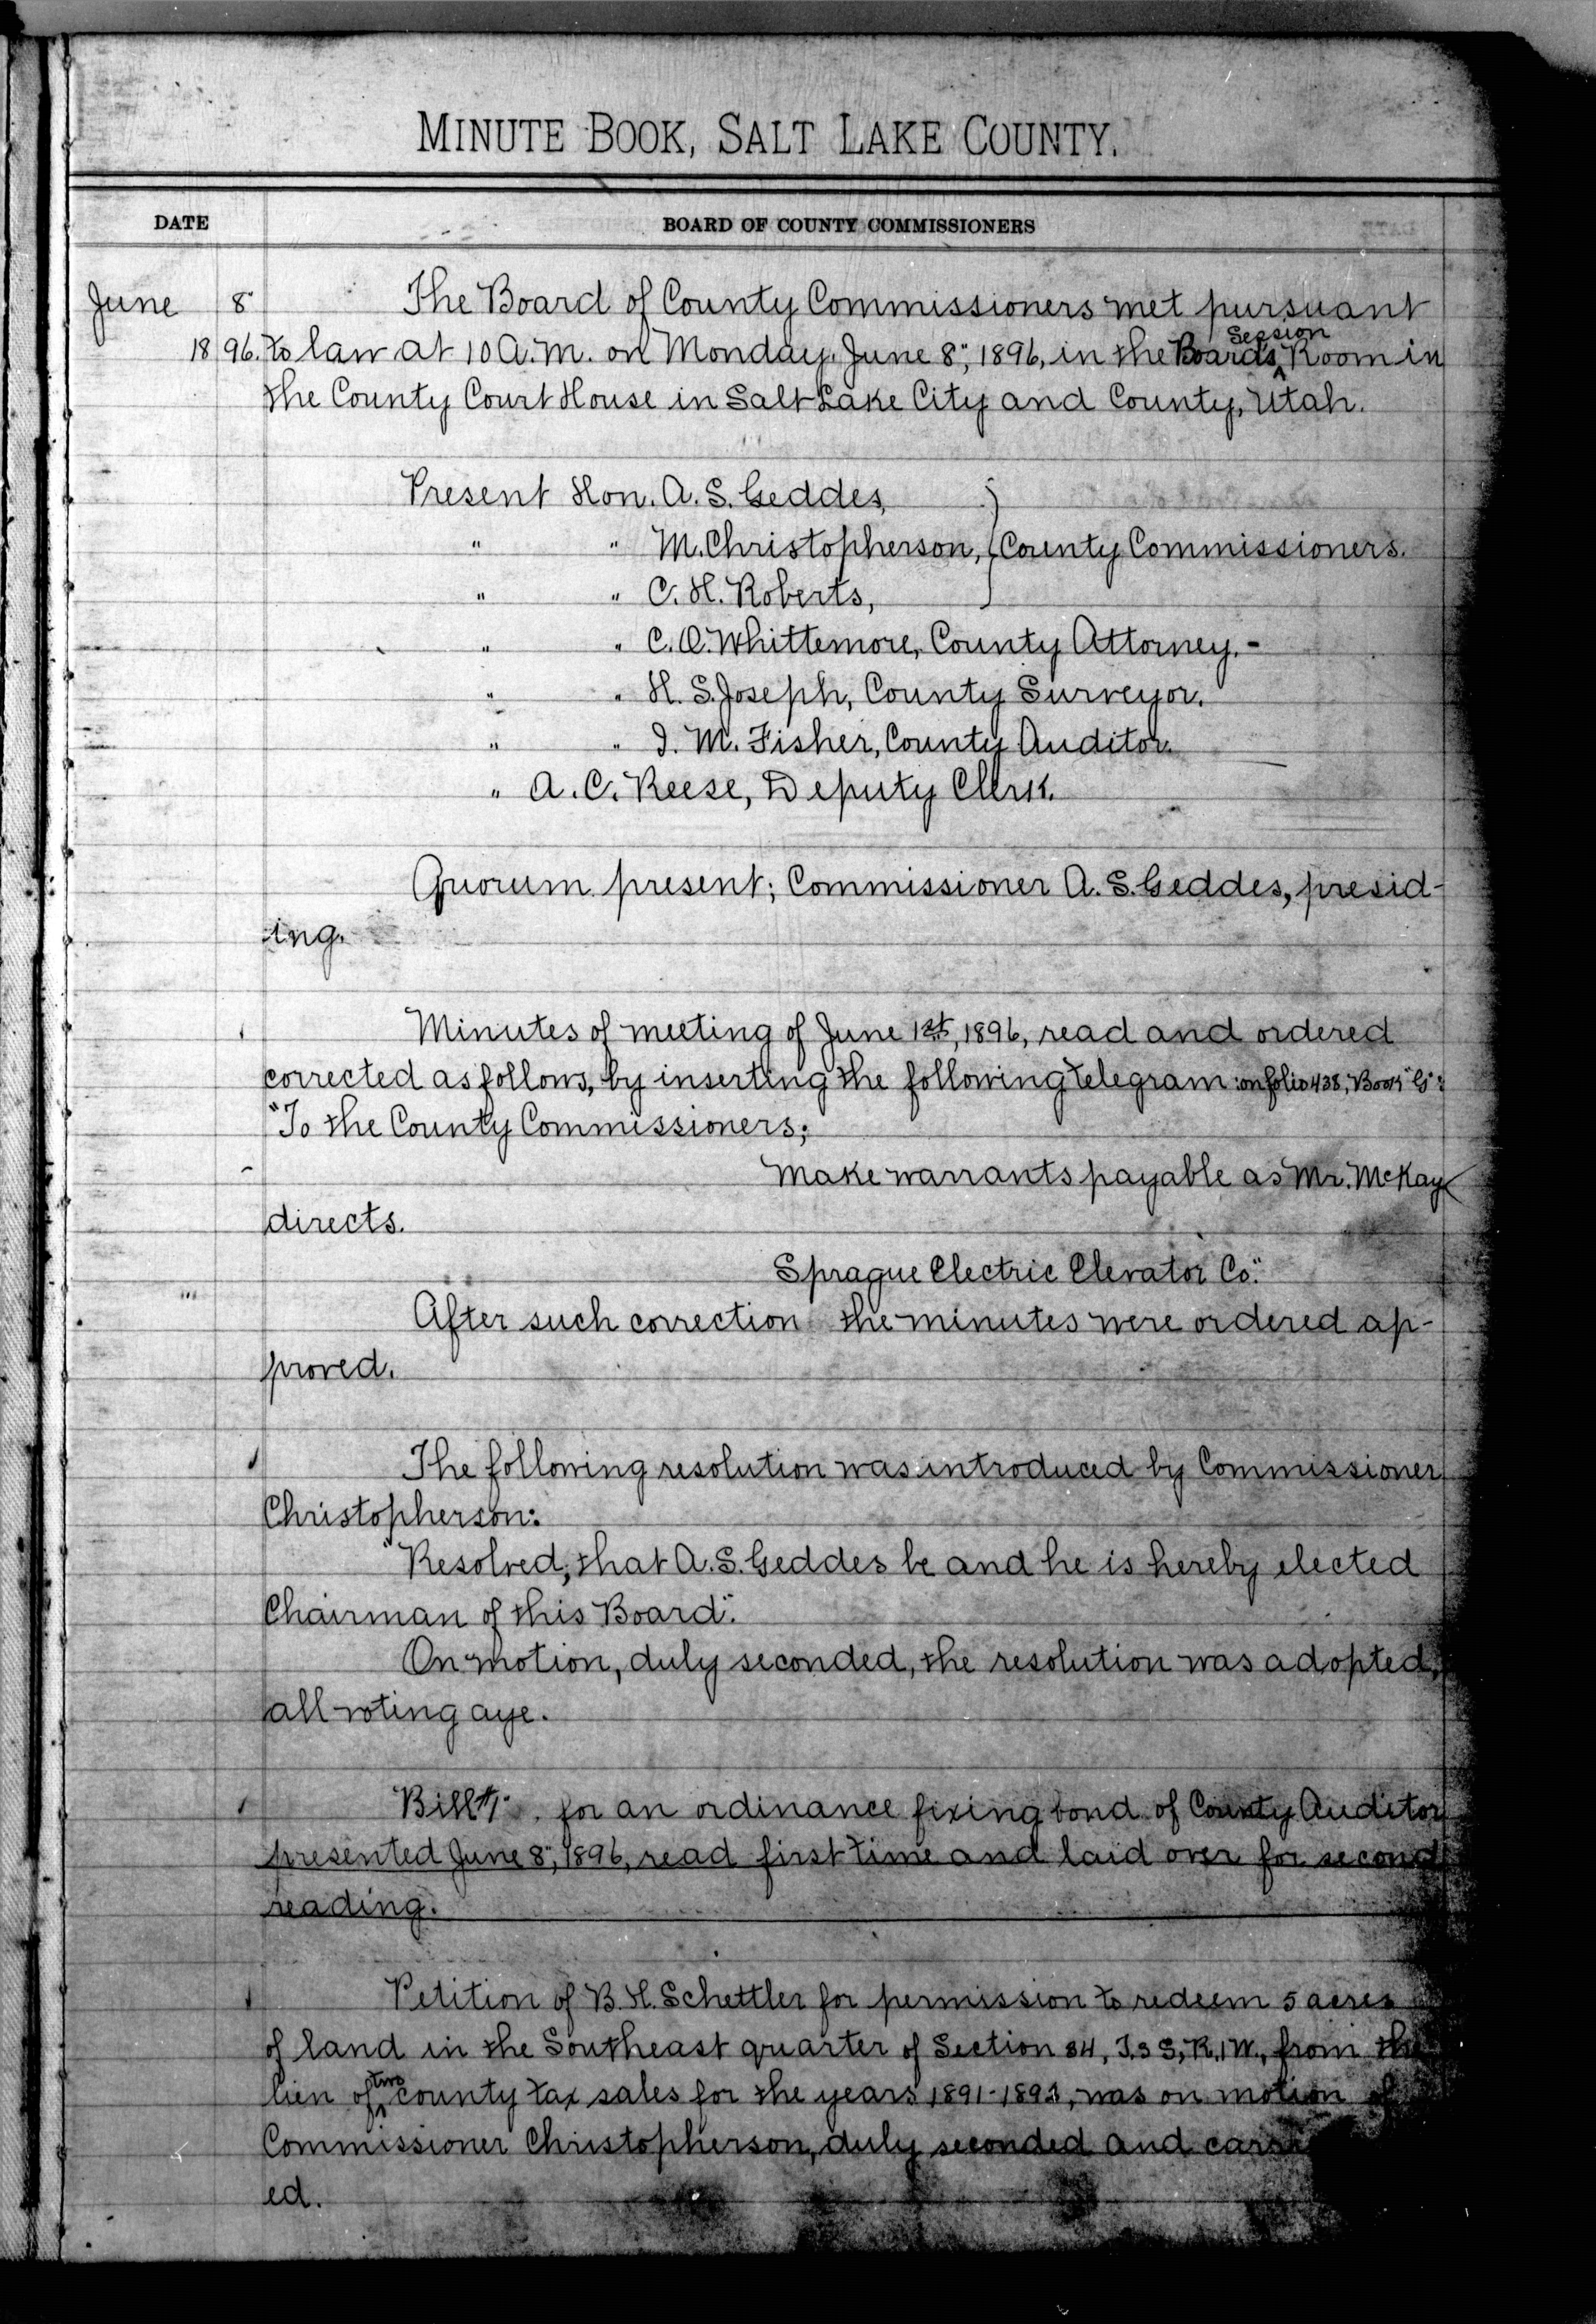 MINUTE BOOK, SALT LAKE COUNTY.
DATE BOARD OF COUNTY COMMISSIONERS
June 8" The Board of County Commissioners met pursuant
1896. to law at 10 A.M. on Monday, June 8", 1896, in the Board's Session Room in
the County Court House in Salt Lake City and County, Utah.
Present Hon. A. S. Geddes,
" " M. Christopherson, County Commissioners.
" " C. H. Roberts,
" " C. O. Whittemore, County Attorney. -
" " H. S. Joseph, County Surveyor.
" " I. M. Fisher, County Auditor.
" A. C. Reese, Deputy Clerk.
Quorum present; Commissioner A. S. Geddes, presid-
ing.
Minutes of meeting of June 1st, 1896, read and ordered
corrected as follows, by inserting the following telegram: on folio 438, Book "G":
"To the County Commissioners;
Make warrants payable as Mr. McKay
directs.
Sprague Electric Elevator Co."
After such correction the minutes were ordered ap-
proved.
The following resolution was introduced by Commissioner
Christopherson:
"Resolved, that A. S. Geddes be and he is hereby elected
Chairman of this Board".
On motion, duly seconded, the resolution was adopted,
all voting aye.
Bill #1 for an ordinance fixing bond of County Auditor
presented June 8", 1896, read first time and laid over for second
reading.
Petition of B. H. Schettler for permission to redeem 5 acres
of land in the Southeast quarter of Section 34, T. 3 S, R. 1 W., from the
lien of two county tax sales for the years 1891-1893, was on motion of
Commissioner Christopherson, duly seconded and
ed.